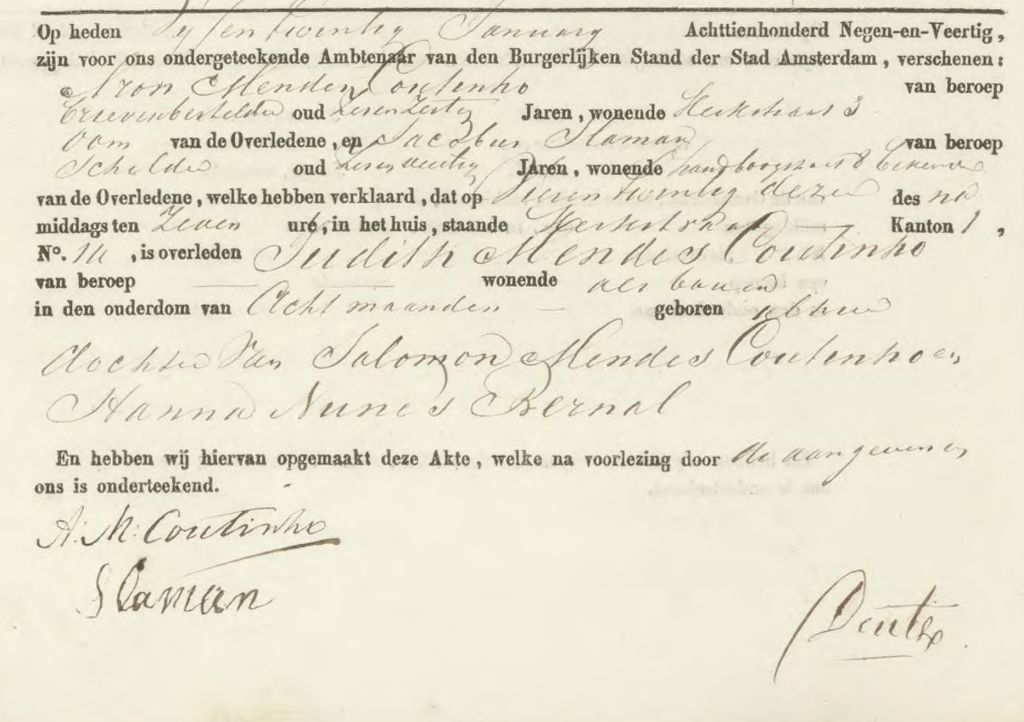 Op heden Vyf en twintig January Achttienhonderd Negen-en-Veertig,
zijn voor ons ondergeteekende Ambtenaar van den Burgerlijken Stand der Stad Amsterdam, verschenen:
Aron Mendes Coutinho van beroep
Brievenbesteller oud Jaren, wonende Kerkstraat 3
Oom van de Overledene, en Jacobus Slaman van beroep
Schilder oud zeven veertig Jaren, wonende Handboogstraat 8 Bekende
van de Overledene, welke hebben verklaard, dat op Vier en twintig dezer des na
middags ten Zeven ure, in het huis, staande Kerkstraat Kanton 1,
N°. , is overleden Judith Mendes Coutinho
van beroep — — wonende als boven
in den ouderdom van Acht maanden — geboren alhier
dochter Van Salomon Mendes Coutinho en
Hanna Nunes Bernal
En hebben wij hiervan opgemaakt deze Akte, welke na voorlezing door de aangevers en
ons is onderteekend.
A: M: Coutinho
Slaman